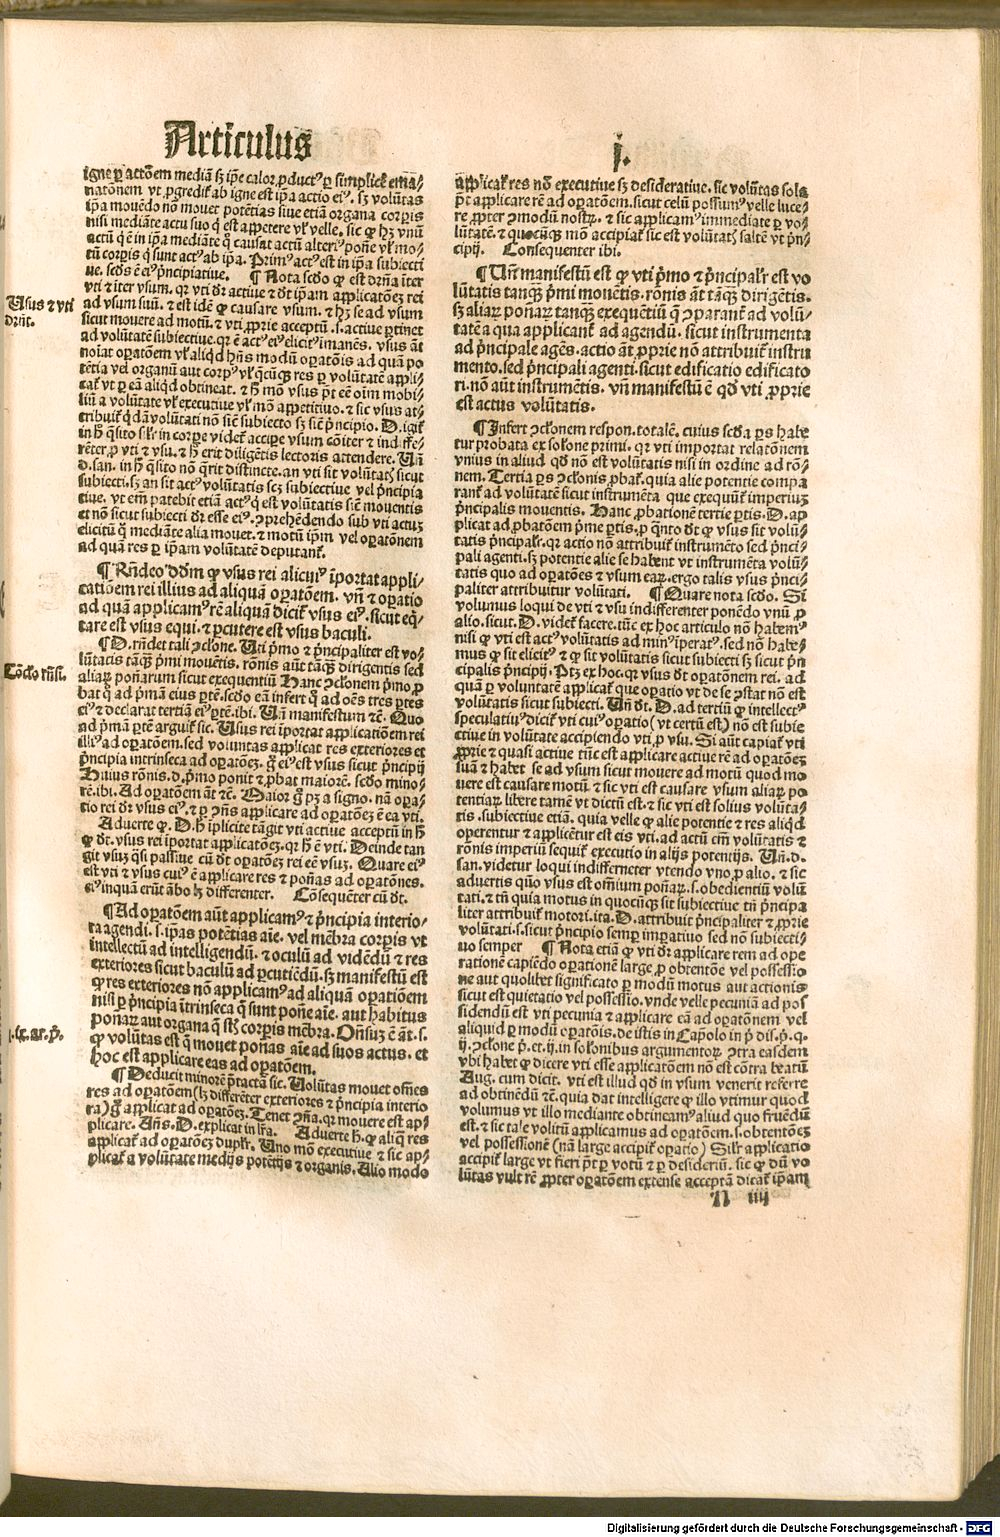 Articulus
j.
igne ꝑ actõem mediã sꝫ ip̃e calor ꝓductꝰ ꝑ simplicẽ ema⸗
natõnem vt ꝓgredit̃ ab igne est ip̃a actio eiꝰ. sꝫ volũtas
ip̃a mouẽdo nõ mouet potẽtias siue etiã organa corꝑis
nisi mediãte actu suo q̃ est appetere vl̃ velle. sic ꝙ hꝫ vnũ
actũ q̃ ẽ in ip̃a mediãte q̃ causat actũ alteriꝰ poñe vl̃ mo⸗
tũ corꝑis q̃ sunt actꝰ ab ip̃a. Primꝰ actꝰ est in ip̃a subiecti
ue. sc̃ds ẽ eiꝰ pͥncipiatiue. ¶ Nota sc̃do ꝙ est dr̃na iter
vti ⁊ iter vsum. qꝛ vti dr̃ actiue ⁊ dt̃ ip̃am applicatõeꝫ rei
ad vsum suũ. ⁊ est idẽ ꝙ causare vsum. ⁊ hꝫ se ad vsum
sicut mouere ad motũ. ⁊ vti ꝓprie acceptũ .s. actiue ꝑtinet
ad volũtatẽ subiectiue. qꝛ ẽ actꝰ eiꝰ elicitꝰ imanẽs. vsus ãt
noiat oꝑatõem vl̃ aliqd hñs modũ oꝑatõis ad quã po
tẽtia vel organũ aut corpꝰ vl̃ q̃cũqꝫ res ꝑ volũtatẽ appli⸗
cat̃ vt ꝑ eã aliqd obtineat. ⁊ h̃ mõ vsus pt̃ eẽ oim mobi⸗
liũ a volũtate vl̃ executiue vl̃ mõ appetitiuo. ⁊ sic vsus at⸗
tribuit̃ q̃dã volũtati nõ sicut̃ subiecto sꝫ sicut̃ pͥncipio. D. igit̃
in h̃ q̃sito silr̃ in corꝑe videt̃ accipe vsum cõiter ⁊ indiffe⸗
rẽter ꝓ vti ⁊ vsu. ⁊ h̃ erit diligẽtis lectoris attendere. Uñ
d. san. in h̃ q̃sito nõ q̃rit distincte. an vti sit volũtat̃ sicut
subiecti. sꝫ an sit actꝰ volũtatis scꝫ subiectiue vel pͥncipia
tiue. vt em̃ patebit etiã actꝰ q̃ est volũtatis sicut̃ mouentis
et nõ sicut subiecti dr̃ esse eiꝰ. ꝯprehẽdendo sub vti actuꝫ
elicitũ q̃ mediãte alia mouet. ⁊ motũ ip̃m vel oꝑatõnem
ad quã res ꝑ ip̃am volũtatẽ deputant̃.
¶ Rñdeo dd̃m ꝙ vsus rei alicuiꝰ ip̃ortat appli⸗
catiõem rei illius ad aliquã oꝑatõem. vñ ⁊ oꝑatio
ad quã applicamꝰ rẽ aliquã dicit̃ vsus eiꝰ. sicut eq̃⸗
tare est vsus equi. ⁊ ꝑcutere est vsus baculi.
¶ D. rñdet tali ꝯclone. Uti pͥmo ⁊ pͥncipaliter est vo⸗
lũtatis tãqꝫ pͥmi mouẽtis. rõnis aũt tãqꝫ dirigentis sed
aliaꝝ poñarum sicut exequentiũ Hanc ꝯclonem pͥmo ꝓ
bat q̃ ad pͥmã eius ꝑtẽ. sc̃do eã infert q̃ ad oẽs tres ꝑtes
eiꝰ ⁊ declarat tertiã eiꝰ ꝑtẽ. ibi. Uñ manifestum ⁊c̃. Quo
ad pͥmã ꝑtẽ arguit̃ sic. Usus rei iportat applicatiõem rei
illiꝰ ad oꝑatõem. sed voluntas applicat res exteriores et
pͥncipia intrinseca ad oꝑatõeꝫ. g̃ eiꝰ est vsus sicut pͥncipij
Huius rõnis .d. pͥmo ponit ⁊ ꝓbat maiorẽ. sc̃do mino⸗
rẽ. ibi. Ad oꝑatõem ãt ⁊c̃. Maior g̃ pꝫ a signo. nã oꝑa⸗
tio rei dr̃ vsus eiꝰ. ⁊ ꝑ ꝯñs applicare ad oꝑatõeꝫ ẽ ea vti.
Aduerte ꝙ .D. h̃ iplicite tãgit vti actiue acceptũ in h̃
ꝙ dt̃. vsus rei iportat applicatõeꝫ. qꝛ h̃ ẽ vti. Deinde tan
git vsuꝫ q̃si passiue cũ dt̃ oꝑatõeꝫ rei eẽ vsuꝫ. Quare eiꝰ
est vti ⁊ vsus cuiꝰ ẽ applicare res ⁊ poñas ad oꝑatões.
eiꝰ inquã erũt ãbo lꝫ differenter. Cõsequẽter cũ dt̃.
¶ Ad oꝑatõem aũt applicamꝰ ⁊ pͥncipia interio⸗
ra agendi .s. ip̃as potẽtias aĩe. vel mẽbra corꝑis vt
intellectũ ad intelligendũ. ⁊ oculũ ad vidẽdũ ⁊ res
exteriores sicut baculũ ad ꝑcutiẽdũ. sꝫ manifestũ est
ꝙ res exteriores nõ applicamꝰ ad aliquã oꝑatiõem
nisi ꝑ pͥncipia itrinseca q̃ sunt poñe aĩe. aut habitus
ponaꝝ aut organa q̃ st̃ corꝑis mẽbra. Oñsuꝫ ẽ ãt .s.
ꝙ volũtas est q̃ mouet poñas aĩe ad suos actus. et
hoc est applicare eas ad oꝑatõem.
¶ Deducit minorẽ pͥtactã sic. Uolũtas mouet om̃es
res ad oꝑatõem (lꝫ differẽter exteriores ⁊ pͥncipia interio
ra) g̃ applicat ad oꝑatõeꝫ. Tenet ꝯña. qꝛ mouere est ap⸗
plicare. Añs .D. explicat in lr̃a. Aduerte h̃. ꝙ aliq̃ res
applicat̃ ad oꝑatõeꝫ duplr̃. Uno mõ executiue ⁊ sic ap⸗
plicat̃ a volũtate medijs potẽtijs ⁊ organis. Alio modo
applicat̃ res nõ executiue sꝫ desideratiue. sic volũtas sola
pt̃ applicare rẽ ad oꝑatõem. sicut celũ possumꝰ velle luce⸗
re ꝓpter ꝯmodũ nostꝝ. ⁊ sic applicamꝰ immediate ꝑ vo⸗
lũtatẽ. ⁊ quocũqꝫ mõ accipiat̃ sic est volũtat̃ saltẽ vt pͥn⸗
cipij. Consequenter ibi.
¶ Uñ manifestũ est ꝙ vti pͥmo ⁊ pͥncipalr̃ est vo
lũtatis tanqꝫ pͥmi mouẽtis. rõnis ãt tãqꝫ dirigẽtis.
sꝫ aliaꝝ poñaꝝ tanqꝫ exequẽtiũ q̃ ꝯparant̃ ad volũ⸗
tatẽ a qua applicant̃ ad agendũ. sicut instrumenta
ad pͥncipale agẽs. actio ãt ꝓprie nõ attribuit̃ instru
mento. sed pͥncipali agenti. sicut edificatio edificato
ri. nõ aũt instrumẽtis. vñ manifestũ ẽ qd̃ vti ꝓprie
est actus volũtatis.
¶ Infert ꝯclonem respon. totalẽ. cuius sc̃da ꝑs habe
tur probata ex solone primi. qꝛ vti importat relatõnem
vnius in aliud qd̃ nõ est volũtatis nisi in ordine ad rõ⸗
nem. Tertia ꝑs ꝯclonis ꝓbat̃. quia alie potentie compa
rant̃ ad volũtatẽ sicut instrumẽta que exequũt̃ imperiuꝫ
pͥncipalis mouentis. Hanc ꝓbationẽ tertie ꝑtis .D. ap⸗
plicat ad ꝓbatõem pͥme ꝑtis. ꝓ q̃nto dt̃ ꝙ vsus sit volũ⸗
tatis pͥncipalr̃. qꝛ actio nõ attribuit̃ instrumẽto sed pͥnci⸗
pali agenti. sꝫ potentie alie se habent vt instrumẽta volũ⸗
tatis quo ad oꝑatões ⁊ vsum eaꝝ. ergo talis vsus pͥnci⸗
paliter attribuitur volũtati. ¶ Quare nota sc̃do. Si
volumus loqui de vti ⁊ vsu indifferenter ponẽdo vnũ ꝓ
alio. sicut .D. videt̃ facere. tũc ex hoc articulo nõ habemꝰ
nisi ꝙ vti est actꝰ volũtatis ad minꝰ iperatꝰ. sed nõ habe⸗
mus ꝙ sit elicitꝰ ⁊ ꝙ sit volũtatis sicut subiecti sꝫ sicut pͥn
cipalis pͥncipij. Ptꝫ ex hoc. qꝛ vsus dt̃ oꝑatõnem rei. ad
quã ꝑ voluntatẽ applicat̃ que oꝑatio vt de se ꝯstat nõ est
volũtatis sicut subiecti. Uñ dt̃. D. ad tertiũ ꝙ intellectꝰ
speculatiuꝰ dicit̃ vti cuiꝰ oꝑatio (vt certũ est) nõ est subie
ctiue in volũtate accipiendo vti ꝓ vsu. Si aũt capiat̃ vti
ꝓprie ⁊ quasi actiue tũc est applicare actiue rẽ ad oꝑatõeꝫ
suã ⁊ habet se ad vsum sicut mouere ad motũ quod mo
uere est causare motũ. ⁊ sic vti est causare vsum aliaꝝ po
tentiaꝝ libere tamẽ vt dictũ est. ⁊ sic vti est solius volũta⸗
tis .subiectiue etiam. quia velle ꝙ alie potentie ⁊ res aliqd̃
operentur ⁊ applicẽtur est eis vti. ad actũ em̃ volũtatis ⁊
rõnis imperiũ sequit̃ executio in alijs potentijs. Uñ .d.
san. videtur loqui indifferneter vtendo vno ꝓ alio. ⁊ sic
aduertis quo vsus est omniũ poñaꝝ .s. obedientiũ volũ
tati. ⁊ tñ quia motus in quocũqꝫ sit subiectiue tñ pͥncipa
liter attribuit̃ motori. ita .D. attribuit pͥncipaliter ⁊ ꝓprie
volũtati .s. sicut pͥncipio semꝑ imꝑatiuo sed nõ subiecti⸗
uo semper ¶ Nota etiã ꝙ vti dr̃ applicare rem ad ope
rationẽ capiẽdo oꝑationẽ large ꝓ obtentõe vel possessio
ne aut quolibet significato ꝑ modũ motus aut actionis
sicut est quietatio vel possessio. vnde velle pecuniã ad pos
sidendũ est vti pecunia ⁊ applicare eã ad oꝑatõnem vel
aliquid ꝑ modũ oꝑatõis. de istis in Capolo in pͥ dis. pͥ. q.
ij. ꝯclone pͥ. et .ij. in solonibus argumentoꝝ ꝯtra easdem
vbi habet ꝙ dicere vti esse applicatõem nõ est cõntra beatũ
Aug. cum dicit. vti est illud qd̃ in vsum venerit referre
ad obtinẽdũ ⁊c̃. quia dat intelligere ꝙ illo vtimur quod
volumus vt illo mediante obtineamꝰ aliud quo fruẽdũ
est. ⁊ sic tale volitũ applicamus ad oꝑatõem .s. obtentõeꝫ
vel possessionẽ (nã large accipit̃ oꝑatio) Silr̃ applicatio
accipit̃ large vt fieri pt̃ ꝑ votũ ⁊ ꝑ desideriũ. sic ꝙ dũ vo
lũtas vult rẽ ꝓpter oꝑatõem extense acceptã dicat̃ ip̃am
n iiij
Usus ⁊ vti
drñt.
Cõclo rñsi.
Digitalisierung gefördert durch die Deutsche Forschungsgemeinschaft - DFG